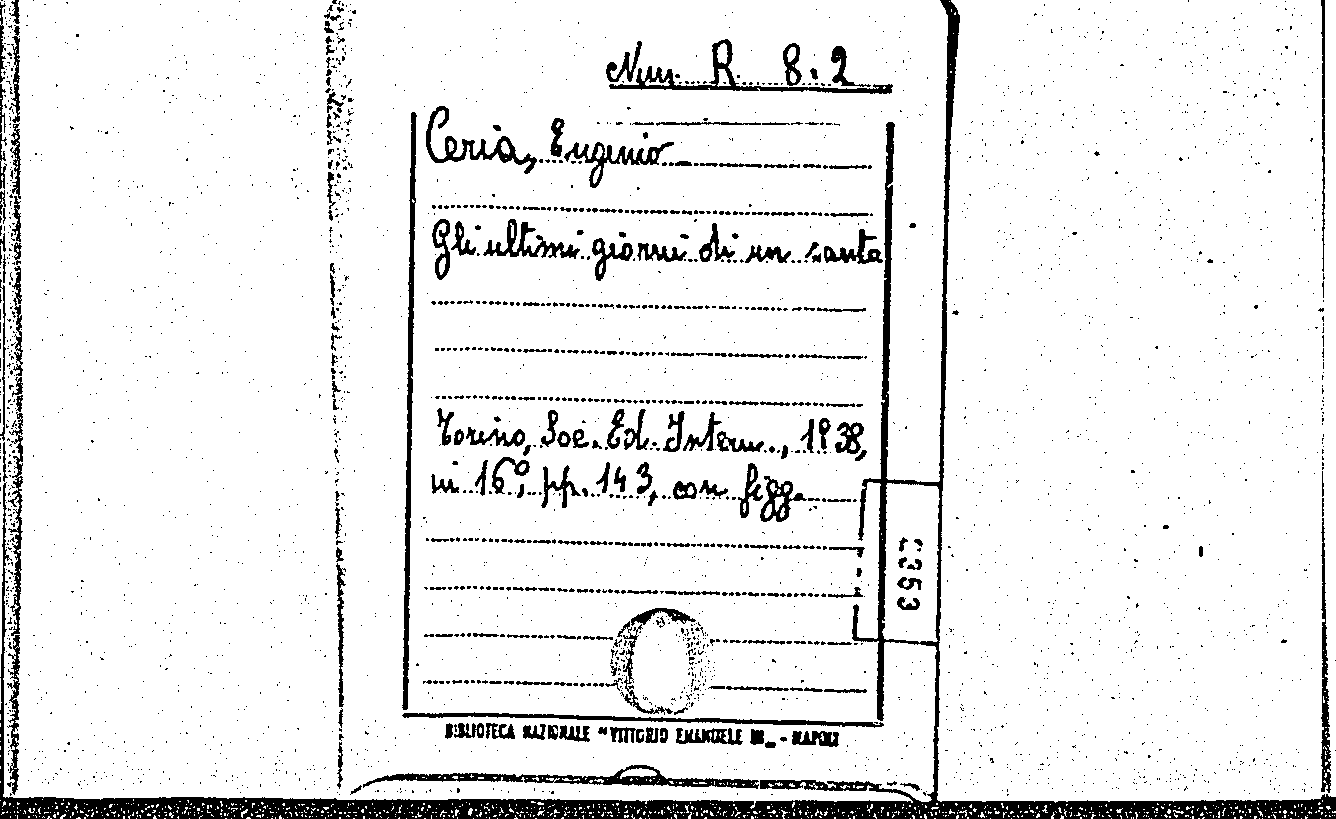 Num. R 8.2
Ceria, Eugenio
Gli ultimi giorni di un santo
Torino, Soc. Ed. Intern., 1938,
in 16°, pp. 143, con figg.
2353
BIBLIOTECA NAZIONALE "VITTORIO EMANUELE III" - NAPOLI